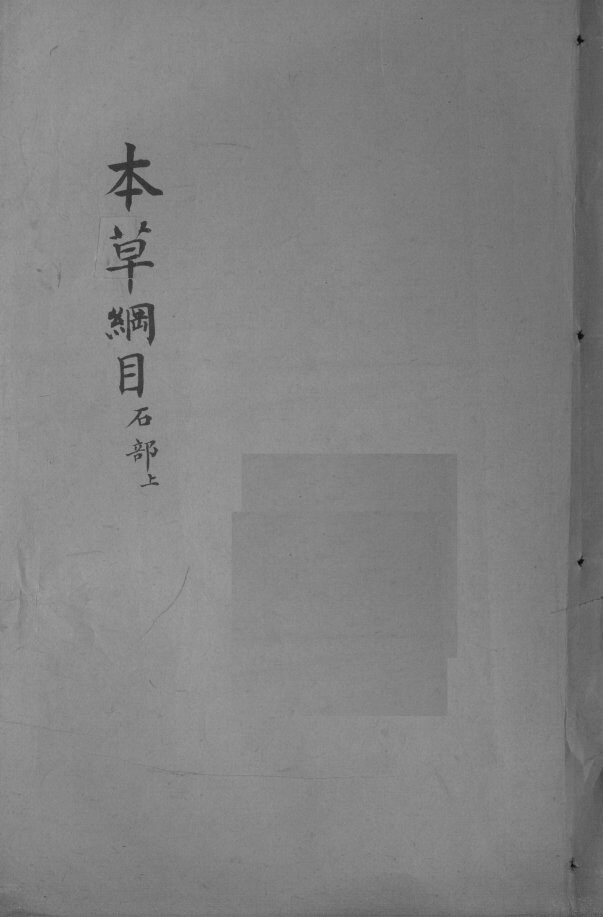 本草綱目石部上